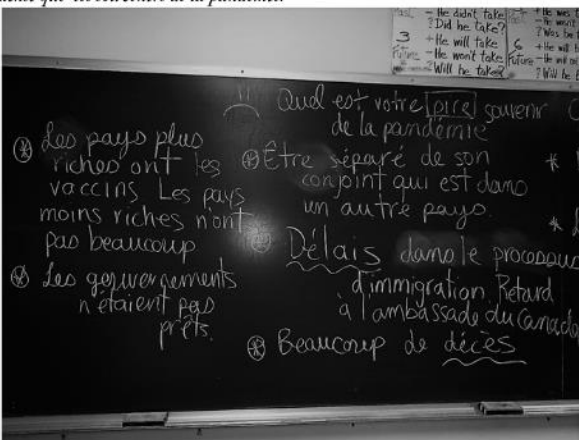 Past
- He didn't take
? Did he take?
3
- He will take
Future
- He won't take
- Will he take?
6
Future
Quel est votre pire souvenir
de la pandémie
⊛ Les pays plus
riches ont les
vaccins Les pays
moins riches n'ont
pas beaucoup
⊛ Les gouvernements
n'étaient pas
prêts.
⊛ Être séparé de son
conjoint qui est dans
un autre pays.
⊛ Délais dans le processus
d'immigration. Retard
à l'ambassade du Canada
⊛ Beaucoup de décès